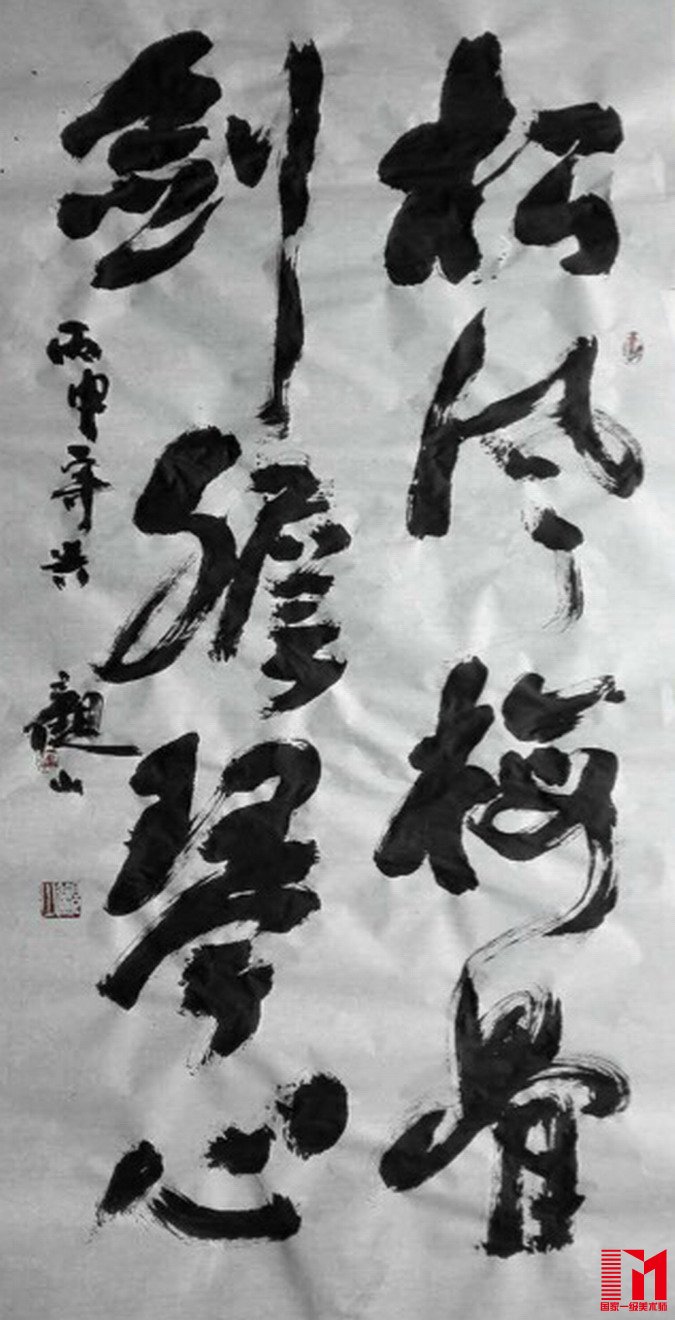 松风梅骨
剑胆琴心
丙申寄兴 观山
国家一级美术师